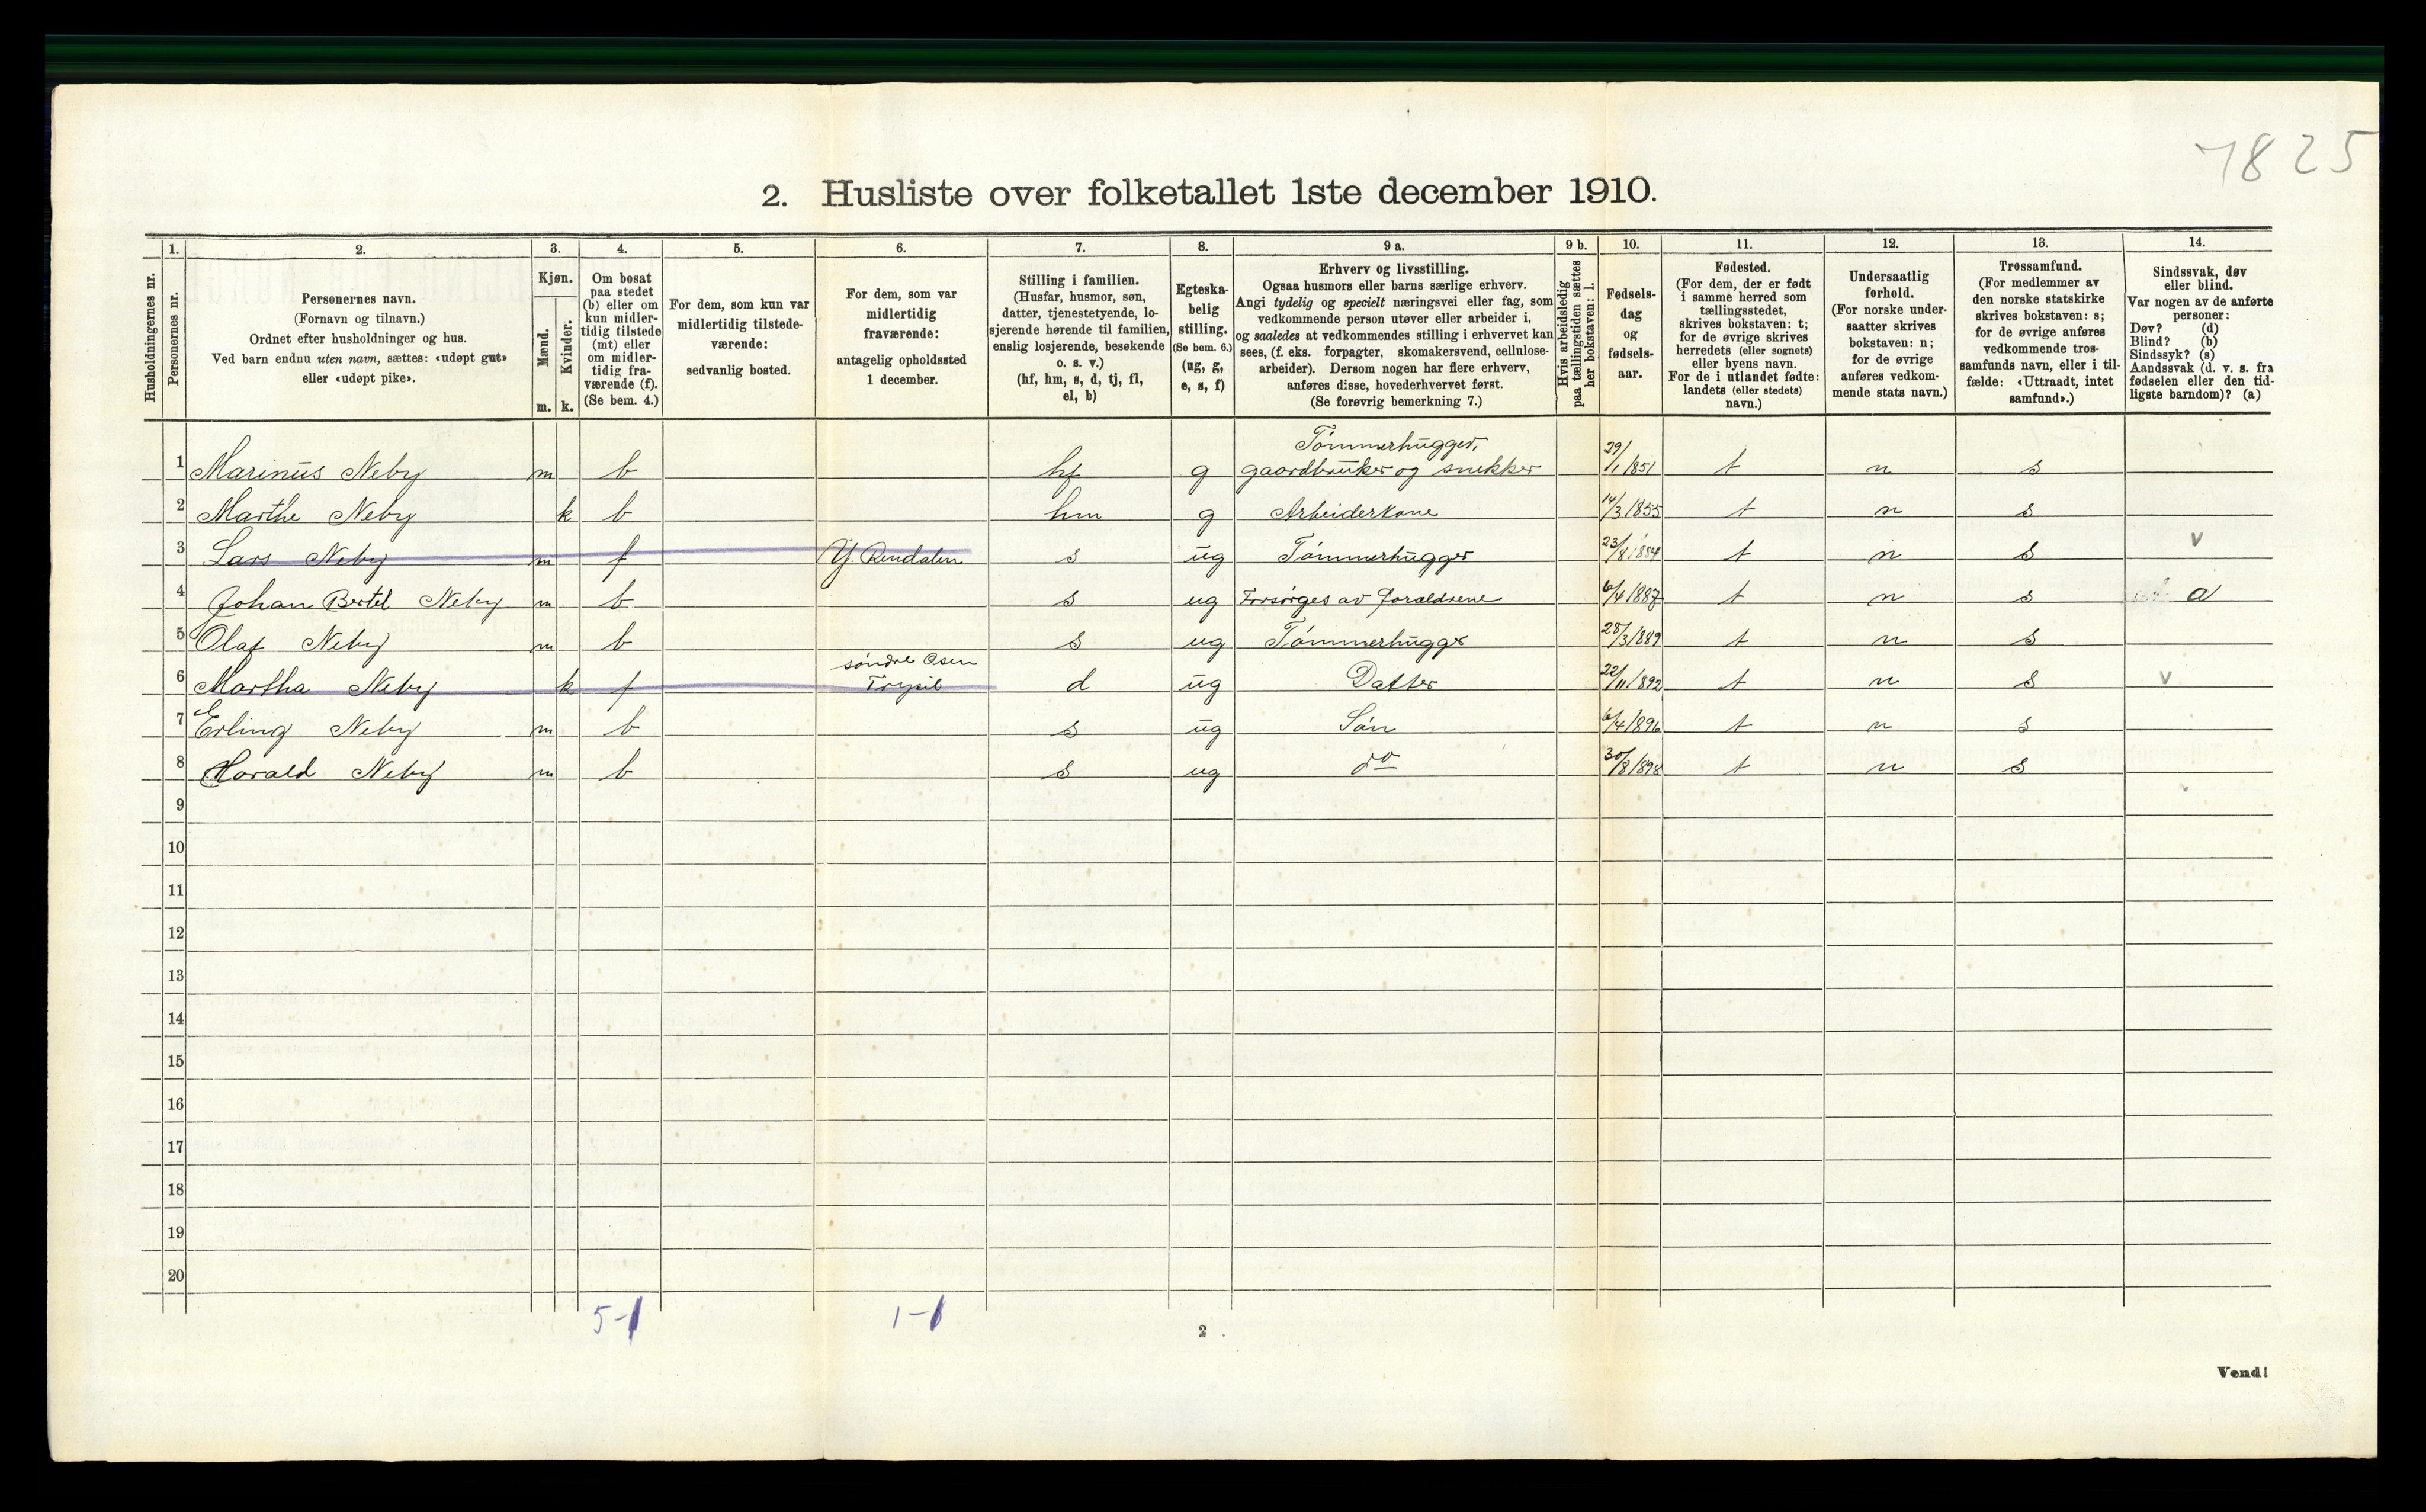 7825
2. Husliste over folketallet 1ste december 1910.
Husholdningernes nr.
1.
Personernes nr.
2.
Personernes navn.
(Fornavn og tilnavn.)
Ordnet efter husholdninger og hus.
Ved barn endnu uten navn, sættes: «udøpt gut»
eller «udøpt pike».
3.
Kjøn.
Mænd.
Kvinder.
m. k.
4.
Om bosat
paa stedet
(b) eller om
kun midler-
tidig tilstede
(mt) eller
om midler-
tidig fra-
værende (f).
(Se bem. 4.)
5.
For dem, som kun var
midlertidig tilstede-
værende:
sedvanlig bosted.
6.
For dem, som var
midlertidig
fraværende:
antagelig opholdssted
1 december.
7.
Stilling i familien.
(Husfar, husmor, søn,
datter, tjenestetyende, lo-
sjerende hørende til familien,
enslig losjerende, besøkende
o. s. v.)
(hf, hm, s, d, tj, fl,
el, b)
8.
Egteska-
belig
stilling.
(Se bem. 6.)
(ug, g,
e, s, f)
9 a.
Erhverv og livsstilling.
Ogsaa husmors eller barns særlige erhverv.
Angi tydelig og specielt næringsvei eller fag, som
vedkommende person utøver eller arbeider i,
og saaledes at vedkommendes stilling i erhvervet kan
sees, (f. eks. forpagter, skomakersvend, cellulose-
arbeider). Dersom nogen har flere erhverv,
anføres disse, hovederhvervet først.
(Se forøvrig bemerkning 7.)
9 b.
Hvis arbeidsledig
paa tællingstiden sættes
her bokstaven: l.
10.
Fødsels-
dag
og
fødsels-
aar.
11.
Fødested.
(For dem, der er født
i samme herred som
tællingsstedet,
skrives bokstaven: t;
for de øvrige skrives
herredets (eller sognets)
eller byens navn.
For de i utlandet fødte:
landets (eller stedets)
navn.)
12.
Undersaatlig
forhold.
(For norske under-
saatter skrives
bokstaven: n;
for de øvrige
anføres vedkom-
mende stats navn.)
13.
Trossamfund.
(For medlemmer av
den norske statskirke
skrives bokstaven: s;
for de øvrige anføres
vedkommende tros-
samfunds navn, eller i til-
fælde: «Uttraadt, intet
samfund».)
14.
Sindssvak, døv
eller blind.
Var nogen av de anførte
personer:
Døv? (d)
Blind? (b)
Sindssyk? (s)
Aandssvak (d. v. s. fra
fødselen eller den tid-
ligste barndom)? (a)
Tømmerhugger,
1 Marinus Neby m b hf g gaardbruker og snekker 29/1 1851 t n s
2 Marthe Neby k b hm g Arbeiderkone 14/3 1855 t n s
3 Lars Neby m f Y. Rendalen s ug Tømmerhugger 23/8 1884 t n s v
4 Johan Bertel Neby m b s ug Forsørges av forældrene 6/4 1887 t n s a
5 Olaf Neby m b s ug Tømmerhugger 28/3 1889 t n s
søndre Osen
6 Martha Neby k f Trysil d ug Datter 22/11 1892 t n s v
7 Erling Neby m b s ug Søn 6/4 1896 t n s
8 Harald Neby m b s ug do 30/8 1898 t n s
9
10
11
12
13
14
15
16
17
18
19
20
5-1 1-1
2
Vend!